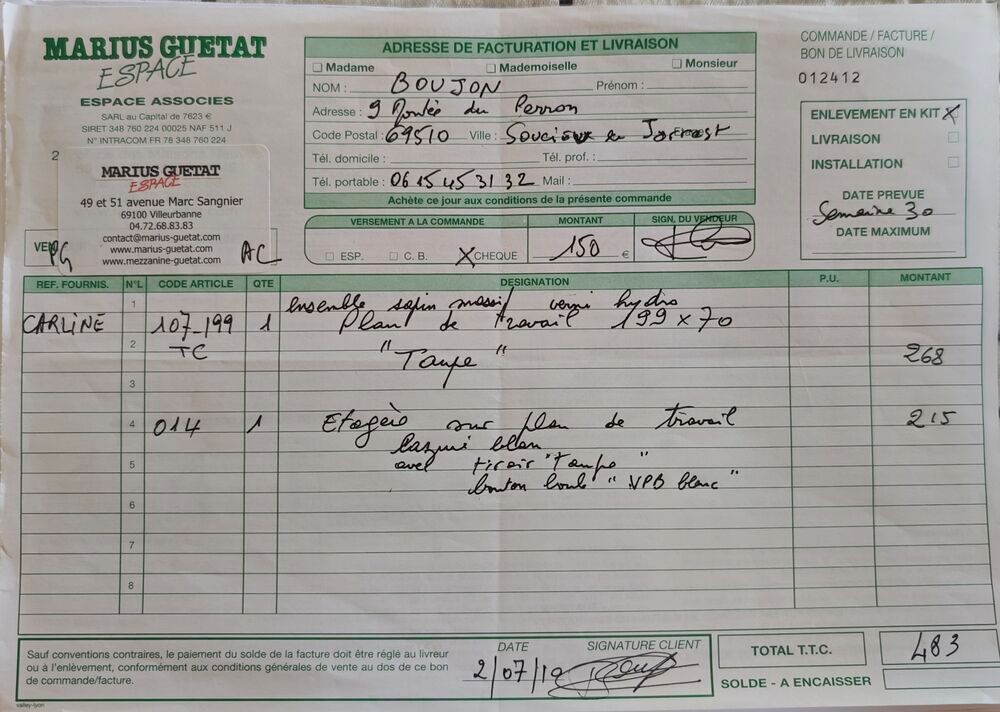 MARIUS GUETAT
ESPACE
ESPACE ASSOCIES
SARL au Capital de 7623 €
SIRET 348 760 224 00025 NAF 511 J
N° INTRACOM FR 78 348 760 224
2
MARIUS GUETAT
ESPACE
49 et 51 avenue Marc Sangnier
69100 Villeurbanne
04.72.68.83.83
contact@marius-guetat.com
www.marius-guetat.com
www.mezzanine-guetat.com
VE PG AC
ADRESSE DE FACTURATION ET LIVRAISON
Madame Mademoiselle Monsieur
NOM : BOUJON Prénom :
Adresse : 9 Montée du Perron
Code Postal : 69510 Ville : Soucieux en Jarrest
Tél. domicile : Tél. prof. :
Tél. portable : 06 15 45 31 32 Mail :
Achète ce jour aux conditions de la présente commande
VERSEMENT A LA COMMANDE MONTANT SIGN. DU VENDEUR
ESP. C.B. X CHEQUE 150 €
COMMANDE / FACTURE /
BON DE LIVRAISON
012412
ENLEVEMENT EN KIT X
LIVRAISON
INSTALLATION
DATE PREVUE
Semaine 30
DATE MAXIMUM
REF. FOURNIS. N°L CODE ARTICLE QTE DESIGNATION P.U. MONTANT
1 ensemble sapin massif verni hydro
CARLINE 107_199 1 Plan de travail 199 x 70
2 TC "Taupe" 268
3
4 014 1 Etagère sur plan de travail 215
lazuré blan
5 avec tiroir "Taupe"
bouton boule "VPB blanc"
6
7
8
Sauf conventions contraires, le paiement du solde de la facture doit être réglé au livreur
ou à l'enlèvement, conformément aux conditions générales de vente au dos de ce bon
de commande/facture.
DATE SIGNATURE CLIENT
2/07/19
TOTAL T.T.C. 483
SOLDE - A ENCAISSER
valley-lyon